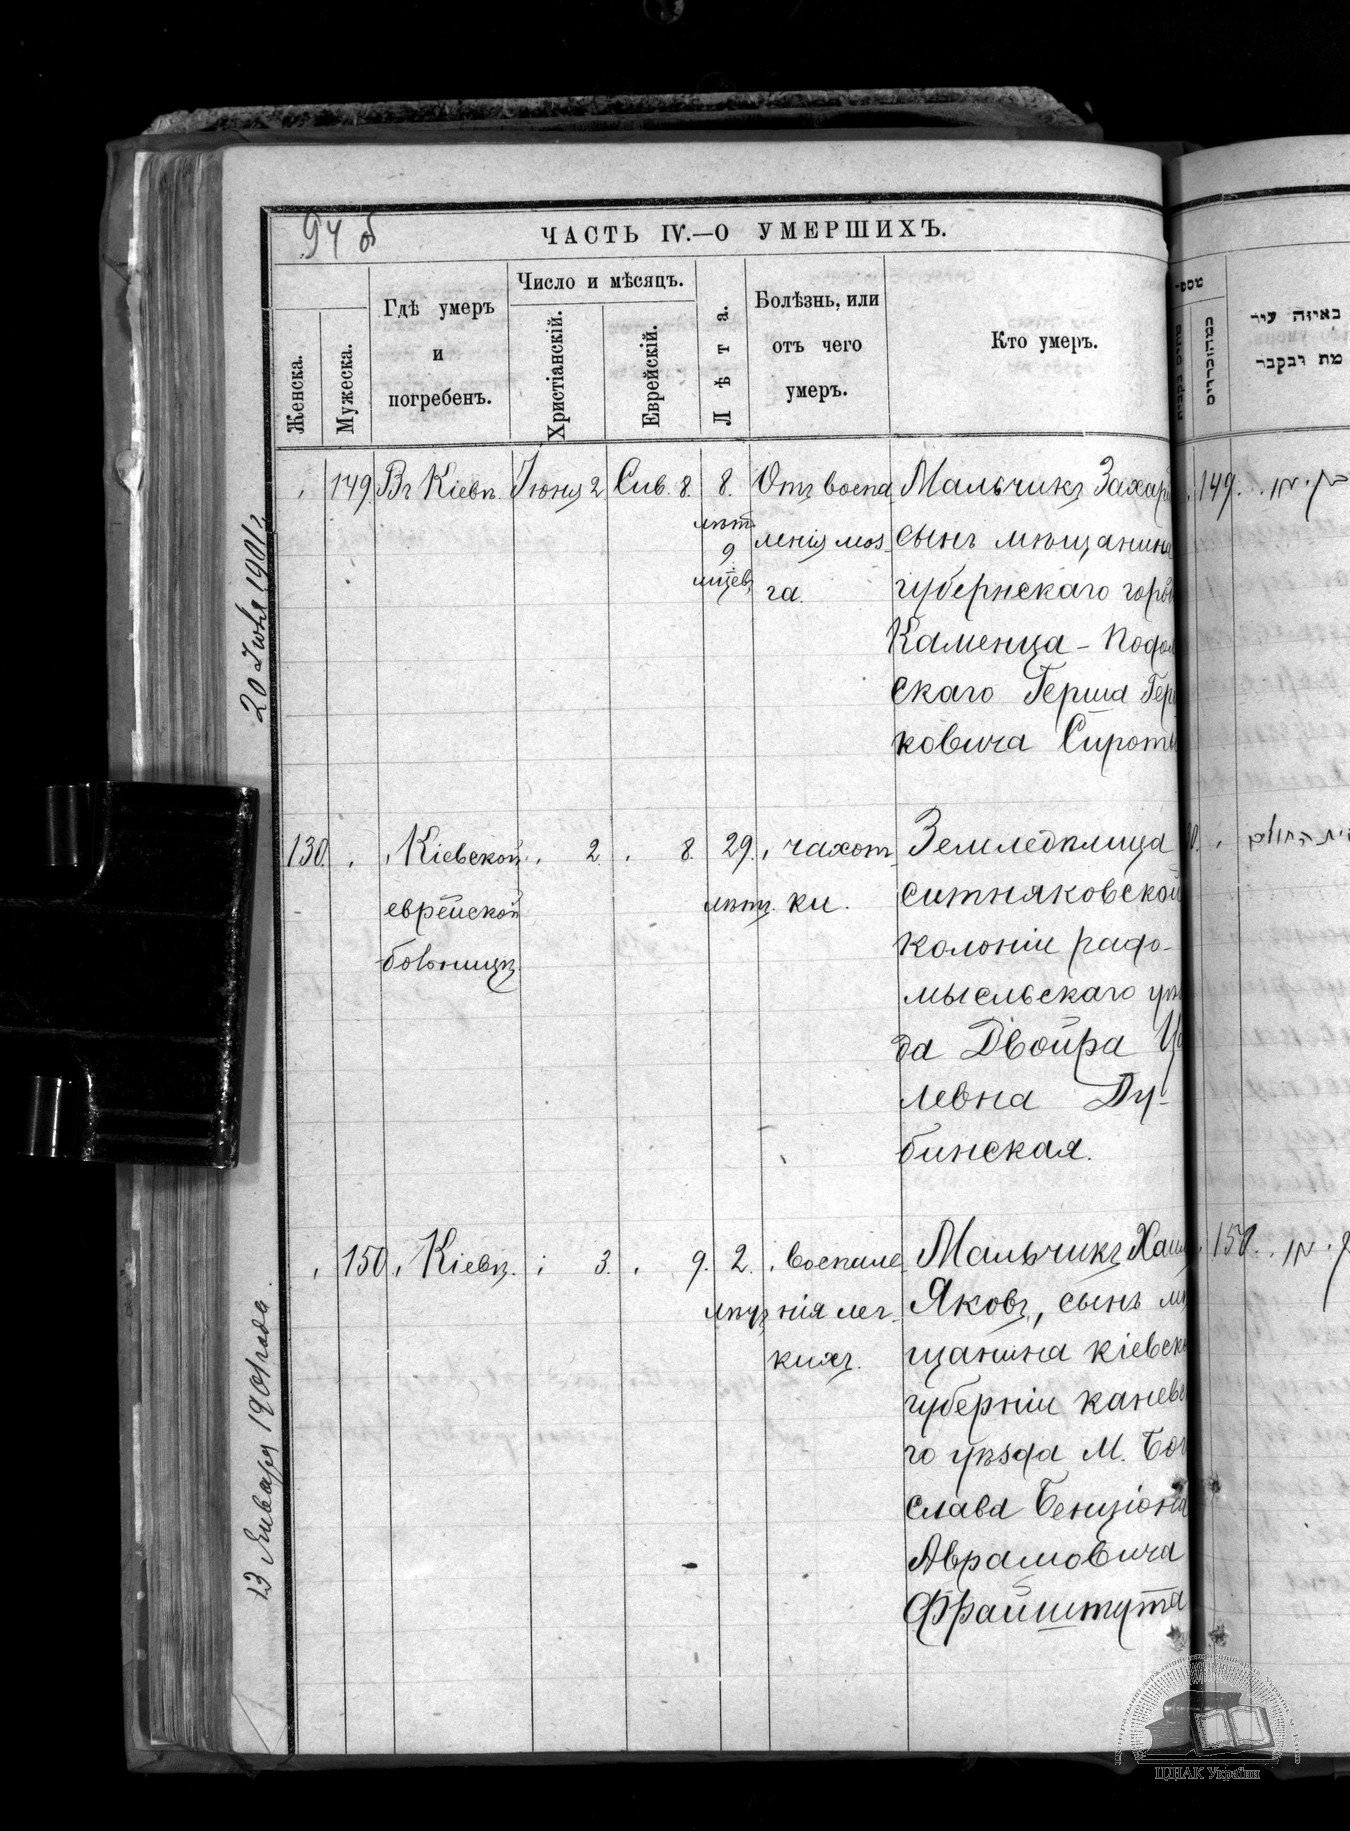 94 об
ЧАСТЬ IV.—О УМЕРШИХЪ.
Женска.
Мужеска.
Гдѣ умеръ
и
погребенъ.
Число и мѣсяцъ.
Христіанскій.
Еврейскій.
Лѣта.
Болѣзнь, или
отъ чего
умеръ.
Кто умеръ.
באיזה עיר
מת ונקבר
149. Въ Кіевѣ. Іюня 2 Сив. 8. 8.
лѣтъ
9
мцевъ
Отъ воспа
ленія моз
га.
Мальчикъ Захарі
сынъ мѣщанина
губернскаго горо
Каменца-Подол
скаго Герша Гер
ковича Сироты
20 Іюля 1901 г.
130. Кіевской 2. 8. 29.
еврейской
больницѣ
лѣтъ.
чахот
ки.
Земледѣлица
ситняковской
колоніи радо-
мысльскаго уѣз
да Двойра
левна Ду-
бинская.
150 Кіевѣ. 3. 9. 2.
лѣтъ
воспале
нія лег
кихъ.
Мальчикъ Хаим
Яковъ, сынъ мѣ
щанина кіевск
губерніи канев
го уѣзда м. Бог
слава Бенціона
Аврамовича
Фрайштута
13 Января 1901 года
149.
150.
ЦДІАК України